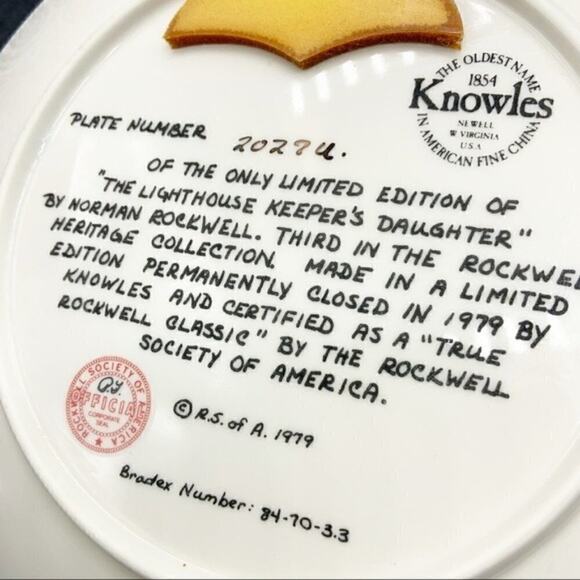 THE OLDEST NAME
1854
Knowles
NEWELL
W. VIRGINIA
U.S.A
IN AMERICAN FINE CHINA
PLATE NUMBER 20279U.
OF THE ONLY LIMITED EDITION OF
"THE LIGHTHOUSE KEEPER'S DAUGHTER"
BY NORMAN ROCKWELL. THIRD IN THE ROCKWEL
HERITAGE COLLECTION. MADE IN A LIMITED
EDITION PERMANENTLY CLOSED IN 1979 BY
KNOWLES AND CERTIFIED AS A "TRUE
ROCKWELL CLASSIC" BY THE ROCKWELL
SOCIETY OF AMERICA.
ROCKWELL SOCIETY OF AMERICA
OFFICIAL
CORPORATE
SEAL
© R.S. of A. 1979
Bradex Number: 84-70-3.3